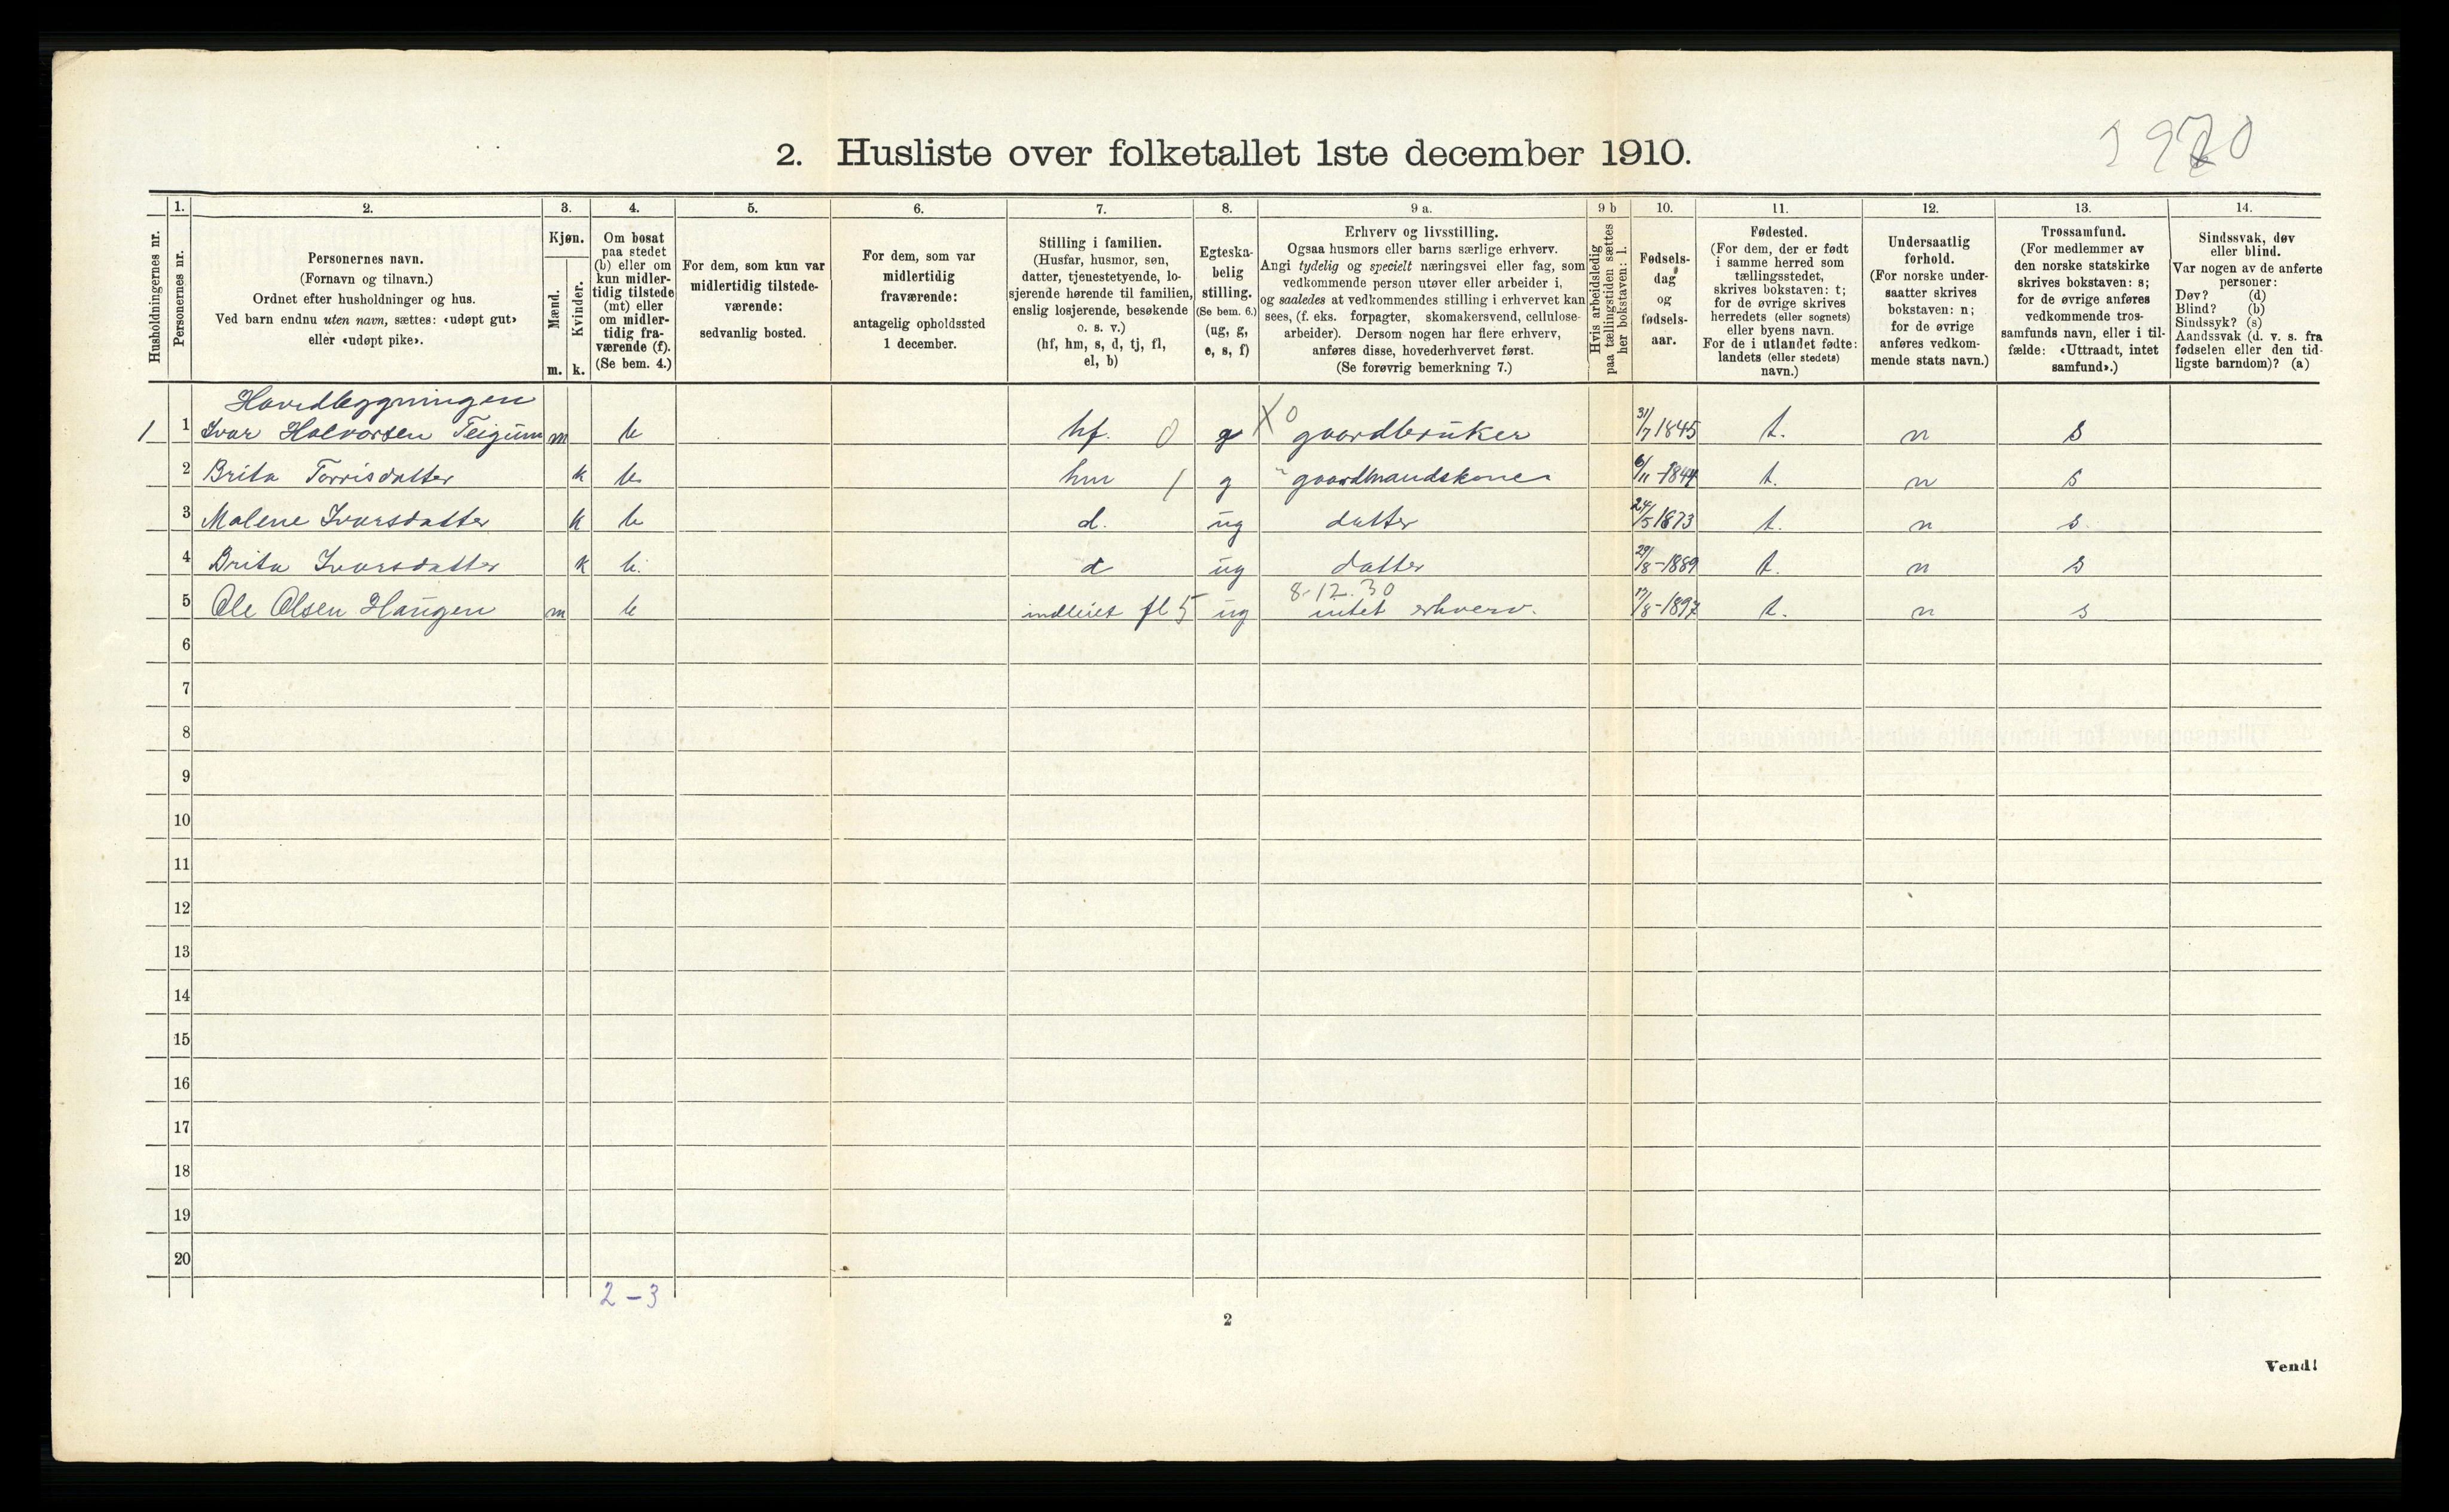 2. Husliste over folketallet 1ste december 1910.
1. 2. 3. 4. 5. 6. 7. 8. 9 a. 9 b 10. 11. 12. 13. 14.
Husholdningernes nr.
Personernes nr.
Personernes navn.
(Fornavn og tilnavn.)
Ordnet efter husholdninger og hus.
Ved barn endnu uten navn, sættes: «udøpt gut»
eller «udøpt pike».
Kjøn.
Mænd.
Kvinder.
m. k.
Om bosat
paa stedet
(b) eller om
kun midler-
tidig tilstede
(mt) eller
om midler-
tidig fra-
værende (f).
(Se bem. 4.)
For dem, som kun var
midlertidig tilstede-
værende:
sedvanlig bosted.
For dem, som var
midlertidig
fraværende:
antagelig opholdssted
1 december.
Stilling i familien.
(Husfar, husmor, søn,
datter, tjenestetyende, lo-
sjerende hørende til familien,
enslig losjerende, besøkende
o. s. v.)
(hf, hm, s, d, tj, fl,
el, b)
Egteska-
belig
stilling.
(Se bem. 6.)
(ug, g,
e, s, f)
Erhverv og livsstilling.
Ogsaa husmors eller barns særlige erhverv.
Angi tydelig og specielt næringsvei eller fag, som
vedkommende person utøver eller arbeider i,
og saaledes at vedkommendes stilling i erhvervet kan
sees, (f. eks. forpagter, skomakersvend, cellulose-
arbeider). Dersom nogen har flere erhverv,
anføres disse, hovederhvervet først.
(Se forøvrig bemerkning 7.)
Hvis arbeidsledig
paa tællingstiden sættes
her bokstaven: l.
Fødsels-
dag
og
fødsels-
aar.
Fødested.
(For dem, der er født
i samme herred som
tællingsstedet,
skrives bokstaven: t;
for de øvrige skrives
herredets (eller sognets)
eller byens navn.
For de i utlandet fødte:
landets (eller stedets)
navn.)
Undersaatlig
forhold.
(For norske under-
saatter skrives
bokstaven: n;
for de øvrige
anføres vedkom-
mende stats navn.)
Trossamfund.
(For medlemmer av
den norske statskirke
skrives bokstaven: s;
for de øvrige anføres
vedkommende tros-
samfunds navn, eller i til-
fælde: «Uttraadt, intet
samfund».)
Sindssvak, døv
eller blind.
Var nogen av de anførte
personer:
Døv? (d)
Blind? (b)
Sindssyk? (s)
Aandssvak (d. v. s. fra
fødselen eller den tid-
ligste barndom)? (a)
Hovedbygningen
1 1 Ivar Halvorsen Teigum m b hf. 0 g X0 gaardbruker 31/7 1845 t. n s
2 Brita Torrisdatter k b hm 1 g gaardmandskone 6/11-1844 t. n s
3 Malene Ivarsdatter k b d. ug datter 24/5 1873 t. n s
4 Brita Ivarsdatter k b. d ug datter 29/8-1889 t. n s
8-12.30
5 Ole Olsen Haugen m b indleiet fl 5 ug intet erhverv. 17/8-1897 t. n s
6
7
8
9
10
11
12
13
14
15
16
17
18
19
20
2-3
2
Vend!